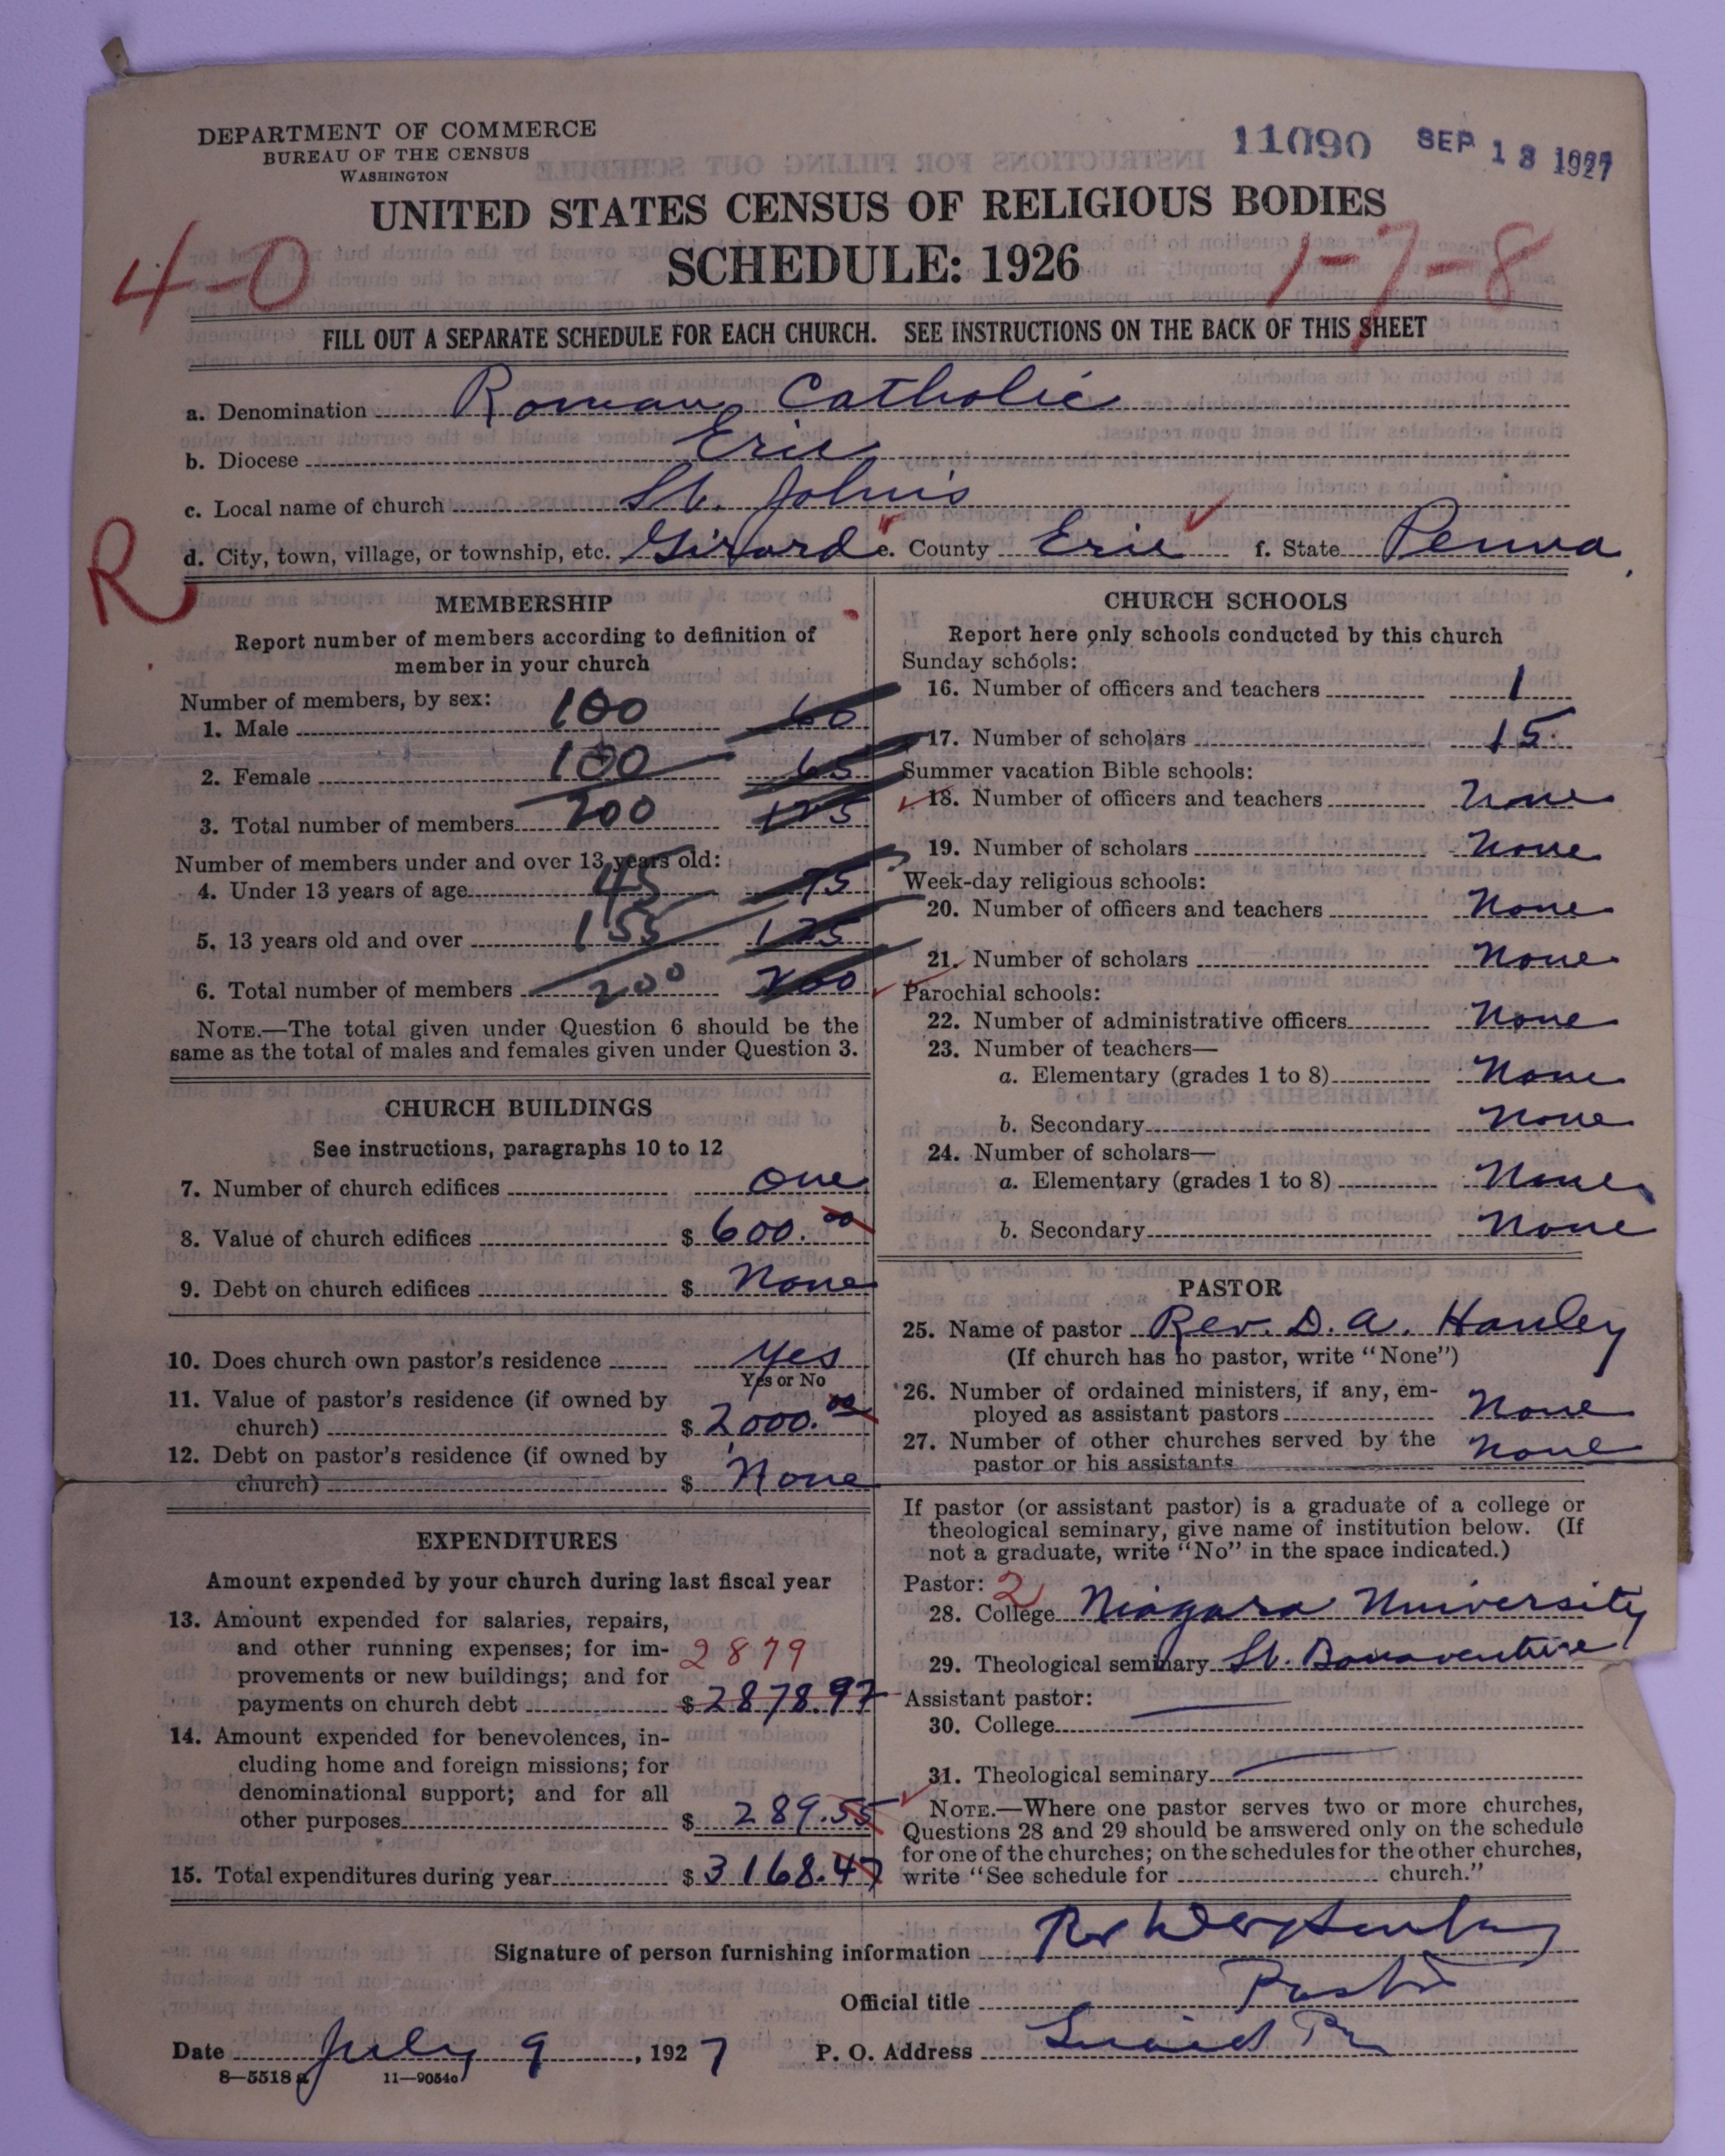 DEPARTMENT OF COMMERCE
BUREAU OF THE CENSUS
WASHINGTON
11090 SEP 13 1927
UNITED STATES CENSUS OF RELIGIOUS BODIES
SCHEDULE: 1926
4-0
1-7-8
FILL OUT A SEPARATE SCHEDULE FOR EACH CHURCH. SEE INSTRUCTIONS ON THE BACK OF THIS SHEET
a. Denomination Roman Catholic
b. Diocese Erie
c. Local name of church St. John's
d. City, town, village, or township, etc. Girard e. County Erie f. State Penna
R
MEMBERSHIP
Report number of members according to definition of
member in your church
Number of members, by sex:
1. Male 100 60
2. Female 100 65
3. Total number of members 200 125
Number of members under and over 13 years old:
4. Under 13 years of age 45 75
5. 13 years old and over 155 125
6. Total number of members 200 200
NOTE.—The total given under Question 6 should be the
same as the total of males and females given under Question 3.
CHURCH BUILDINGS
See instructions, paragraphs 10 to 12
7. Number of church edifices one
8. Value of church edifices $ 600.00
9. Debt on church edifices $ None
10. Does church own pastor's residence Yes
Yes or No
11. Value of pastor's residence (if owned by
church) $ 2,000.00
12. Debt on pastor's residence (if owned by
church) $ None
EXPENDITURES
Amount expended by your church during last fiscal year
13. Amount expended for salaries, repairs,
and other running expenses; for im-
provements or new buildings; and for 2879
payments on church debt $ 2878.97
14. Amount expended for benevolences, in-
cluding home and foreign missions; for
denominational support; and for all
other purposes $ 289.55
15. Total expenditures during year $ 3168.47
CHURCH SCHOOLS
Report here only schools conducted by this church
Sunday schools:
16. Number of officers and teachers 1
17. Number of scholars 15.
Summer vacation Bible schools:
18. Number of officers and teachers None
19. Number of scholars None
Week-day religious schools:
20. Number of officers and teachers None
21. Number of scholars None
Parochial schools:
22. Number of administrative officers None
23. Number of teachers—
a. Elementary (grades 1 to 8) None
b. Secondary None
24. Number of scholars—
a. Elementary (grades 1 to 8) None
b. Secondary None
PASTOR
25. Name of pastor Rev. D. A. Hanley
(If church has no pastor, write "None")
26. Number of ordained ministers, if any, em-
ployed as assistant pastors None
27. Number of other churches served by the
pastor or his assistants None
If pastor (or assistant pastor) is a graduate of a college or
theological seminary, give name of institution below. (If
not a graduate, write "No" in the space indicated.)
Pastor: 2
28. College Niagara University
29. Theological seminary St. Bonaventure
Assistant pastor:
30. College
31. Theological seminary
NOTE.—Where one pastor serves two or more churches,
Questions 28 and 29 should be answered only on the schedule
for one of the churches; on the schedules for the other churches,
write "See schedule for church."
Signature of person furnishing information Rev D A Hanley
Official title Pastor
Date July 9, 1927 P. O. Address
8—5518 a 11—9054a